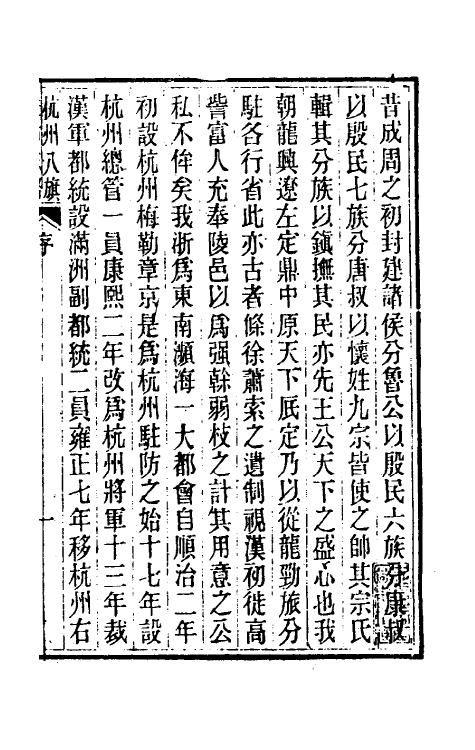 昔成周之初封建諸侯分魯公以殷民六族分康叔
以殷民七族分唐叔以懷姓九宗皆使之帥其宗氏
輯其分族以鎭撫其民亦先王公天下之盛心也我
朝龍興遼左定鼎中原天下厎定乃以從龍勁旅分
駐各行省此亦古者條徐蕭索之遺制視漢初徙高
訾富人充奉陵邑以爲强榦弱枝之計其用意之公
私不侔矣我浙爲東南瀕海一大都會自順治二年
初設杭州梅勒章京是爲杭州駐防之始十七年設
杭州總管一員康熙二年改爲杭州將軍十三年裁
漢軍都統設滿洲副都統二員雍正七年移杭州右
杭州八旗
序
一